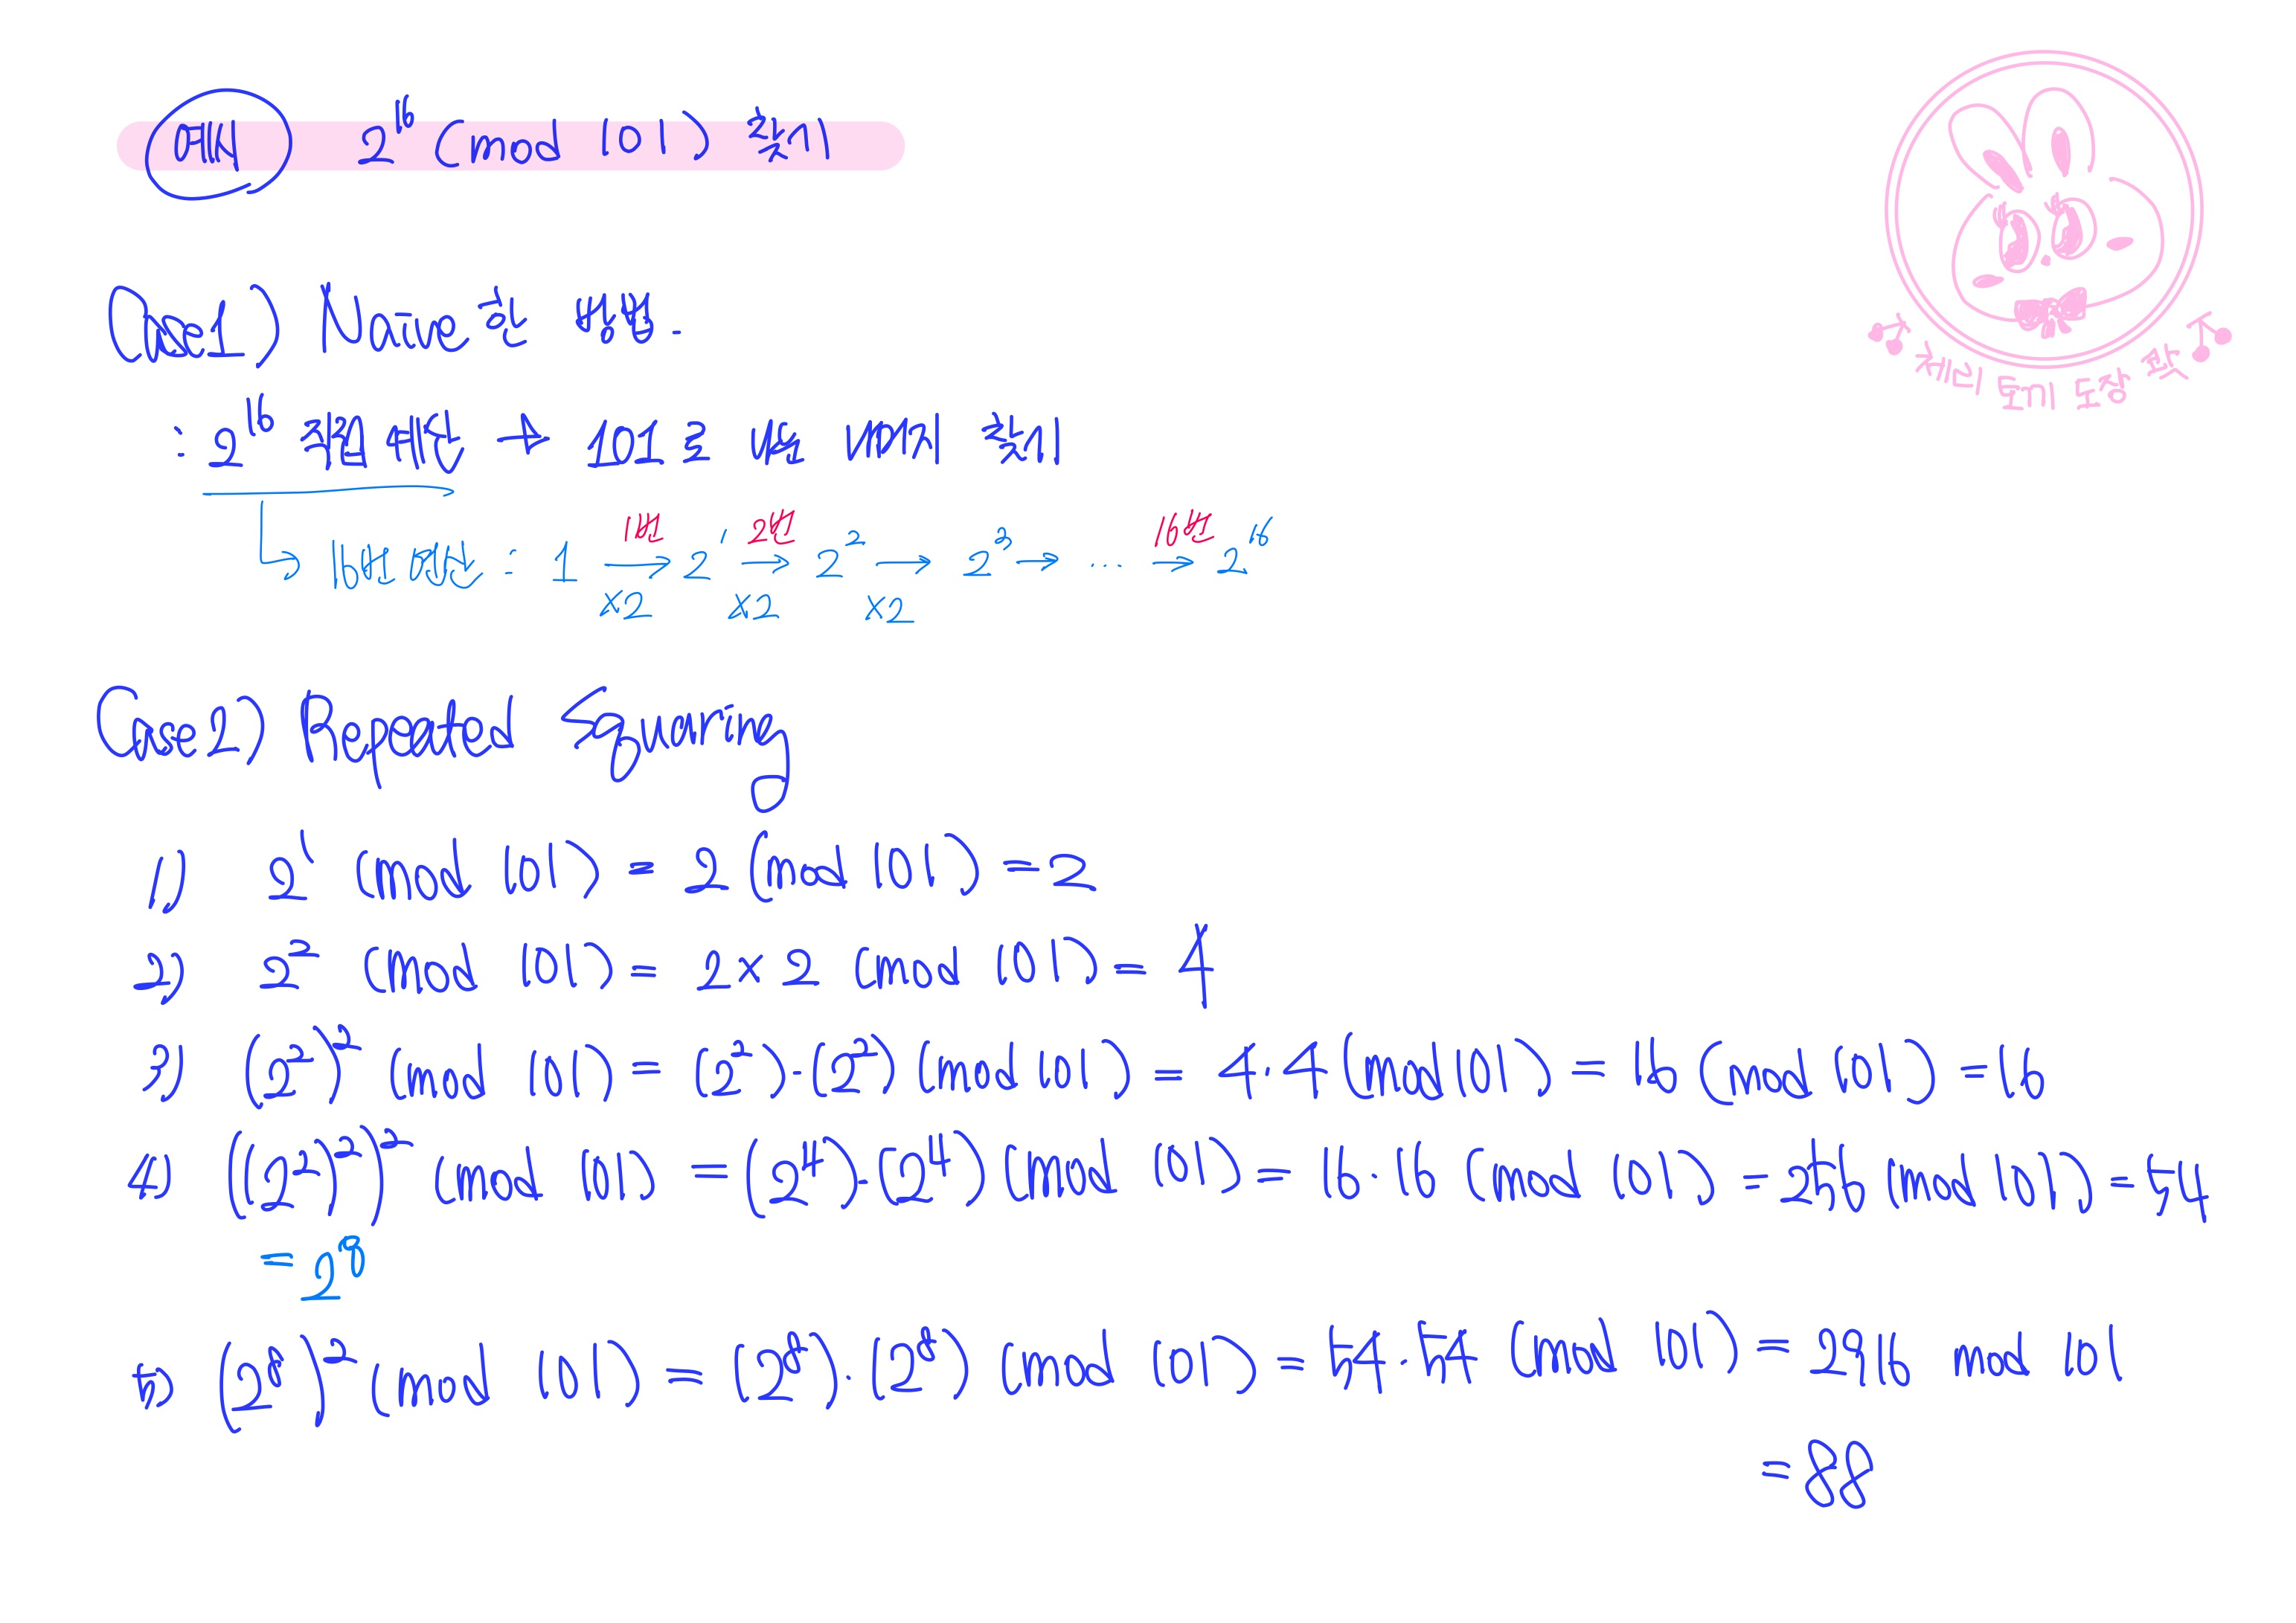 예시 2^16 (mod 101) 찾기
Case1) Naive한 방법.
: 2^16 직접 계산 → 101로 나눈 나머지 찾기
↳ 16번 연산 : 1 →(1번, ×2) 2^1 →(2번, ×2) 2^2 →(×2) 2^3 → ... →(16번) 2^16
Case2) Repeated Squaring
1) 2^1 (mod 101) = 2 (mod 101) = 2
2) 2^2 (mod 101) = 2×2 (mod 101) = 4
3) (2^2)^2 (mod 101) = (2^2)·(2^2) (mod 101) = 4·4 (mod 101) = 16 (mod 101) = 16
4) ((2^2)^2)^2 (mod 101) = (2^4)·(2^4) (mod 101) = 16·16 (mod 101) = 256 (mod 101) = 54
= 2^8
5) (2^8)^2 (mod 101) = (2^8)·(2^8) (mod 101) = 54·54 (mod 101) = 2916 mod 101
= 88
토끼 도장 콱